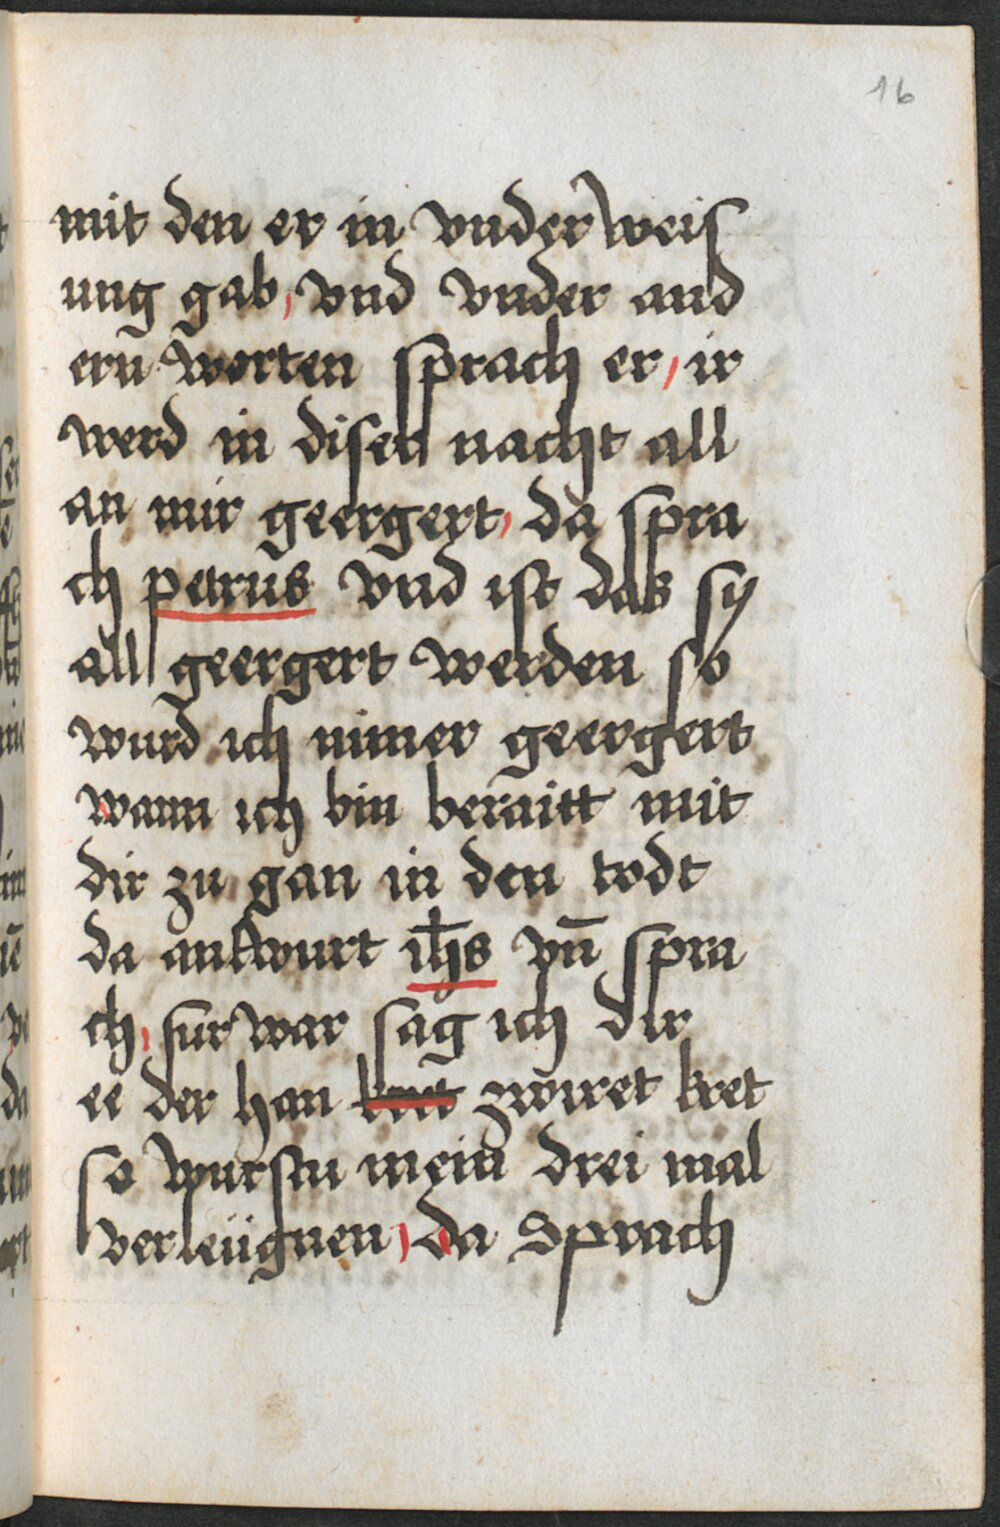 16
mit den er in vnder weis
ung gab, vnd vnder and
ern worten sprach er, ir
werd in diser nacht all
an mir geergert, da spra
ch petrus vnd ist das sy
all geergert werden so
wurd ich nimer geergert
wann ich bin beraitt mit
dir zu gan in den todt
da antwurt ih̅s vn̅ spra
ch, fur war sag ich dir
ee der han zwiret kret
so wurstu mein drei mal
verleügnen, da sprach